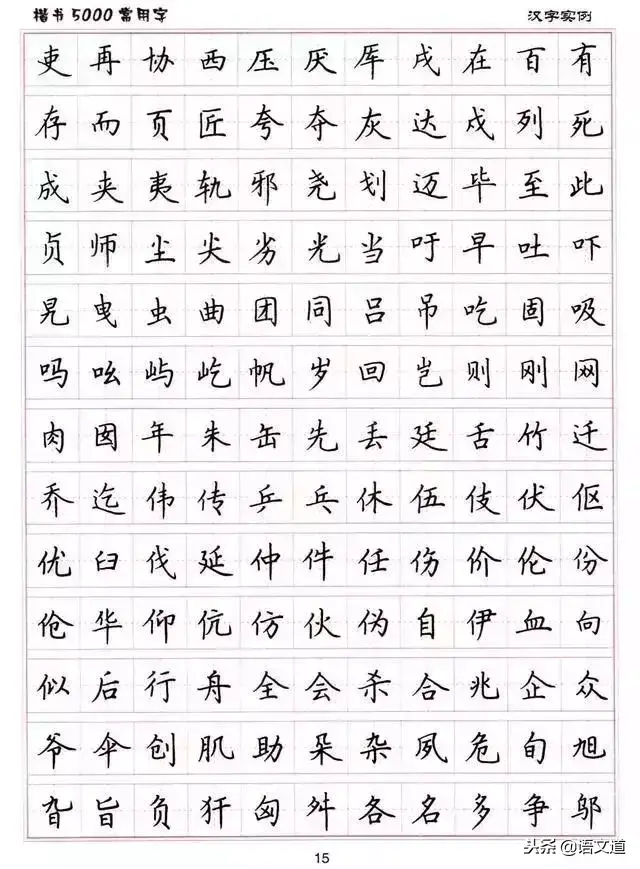 楷书5000常用字 汉字实例
吏再协西压厌厍戌在百有
存而页匠夸夺灰达戍列死
成夹夷轨邪尧划迈毕至此
贞师尘尖劣光当吁早吐吓
旯曳虫曲团同吕吊吃因吸
吗吆屿屹帆岁回岂则刚网
肉囡年朱缶先丢廷舌竹迁
乔迄伟传乒乓休伍伎伏伛
优臼伐延仲件任伤价伦份
伧华仰伉仿伙伪自伊血向
似后行舟全会杀合兆企众
爷伞创肌肋朵杂夙危旬旭
旮旨负犴匈舛各名多争邬
头条@语文道
15